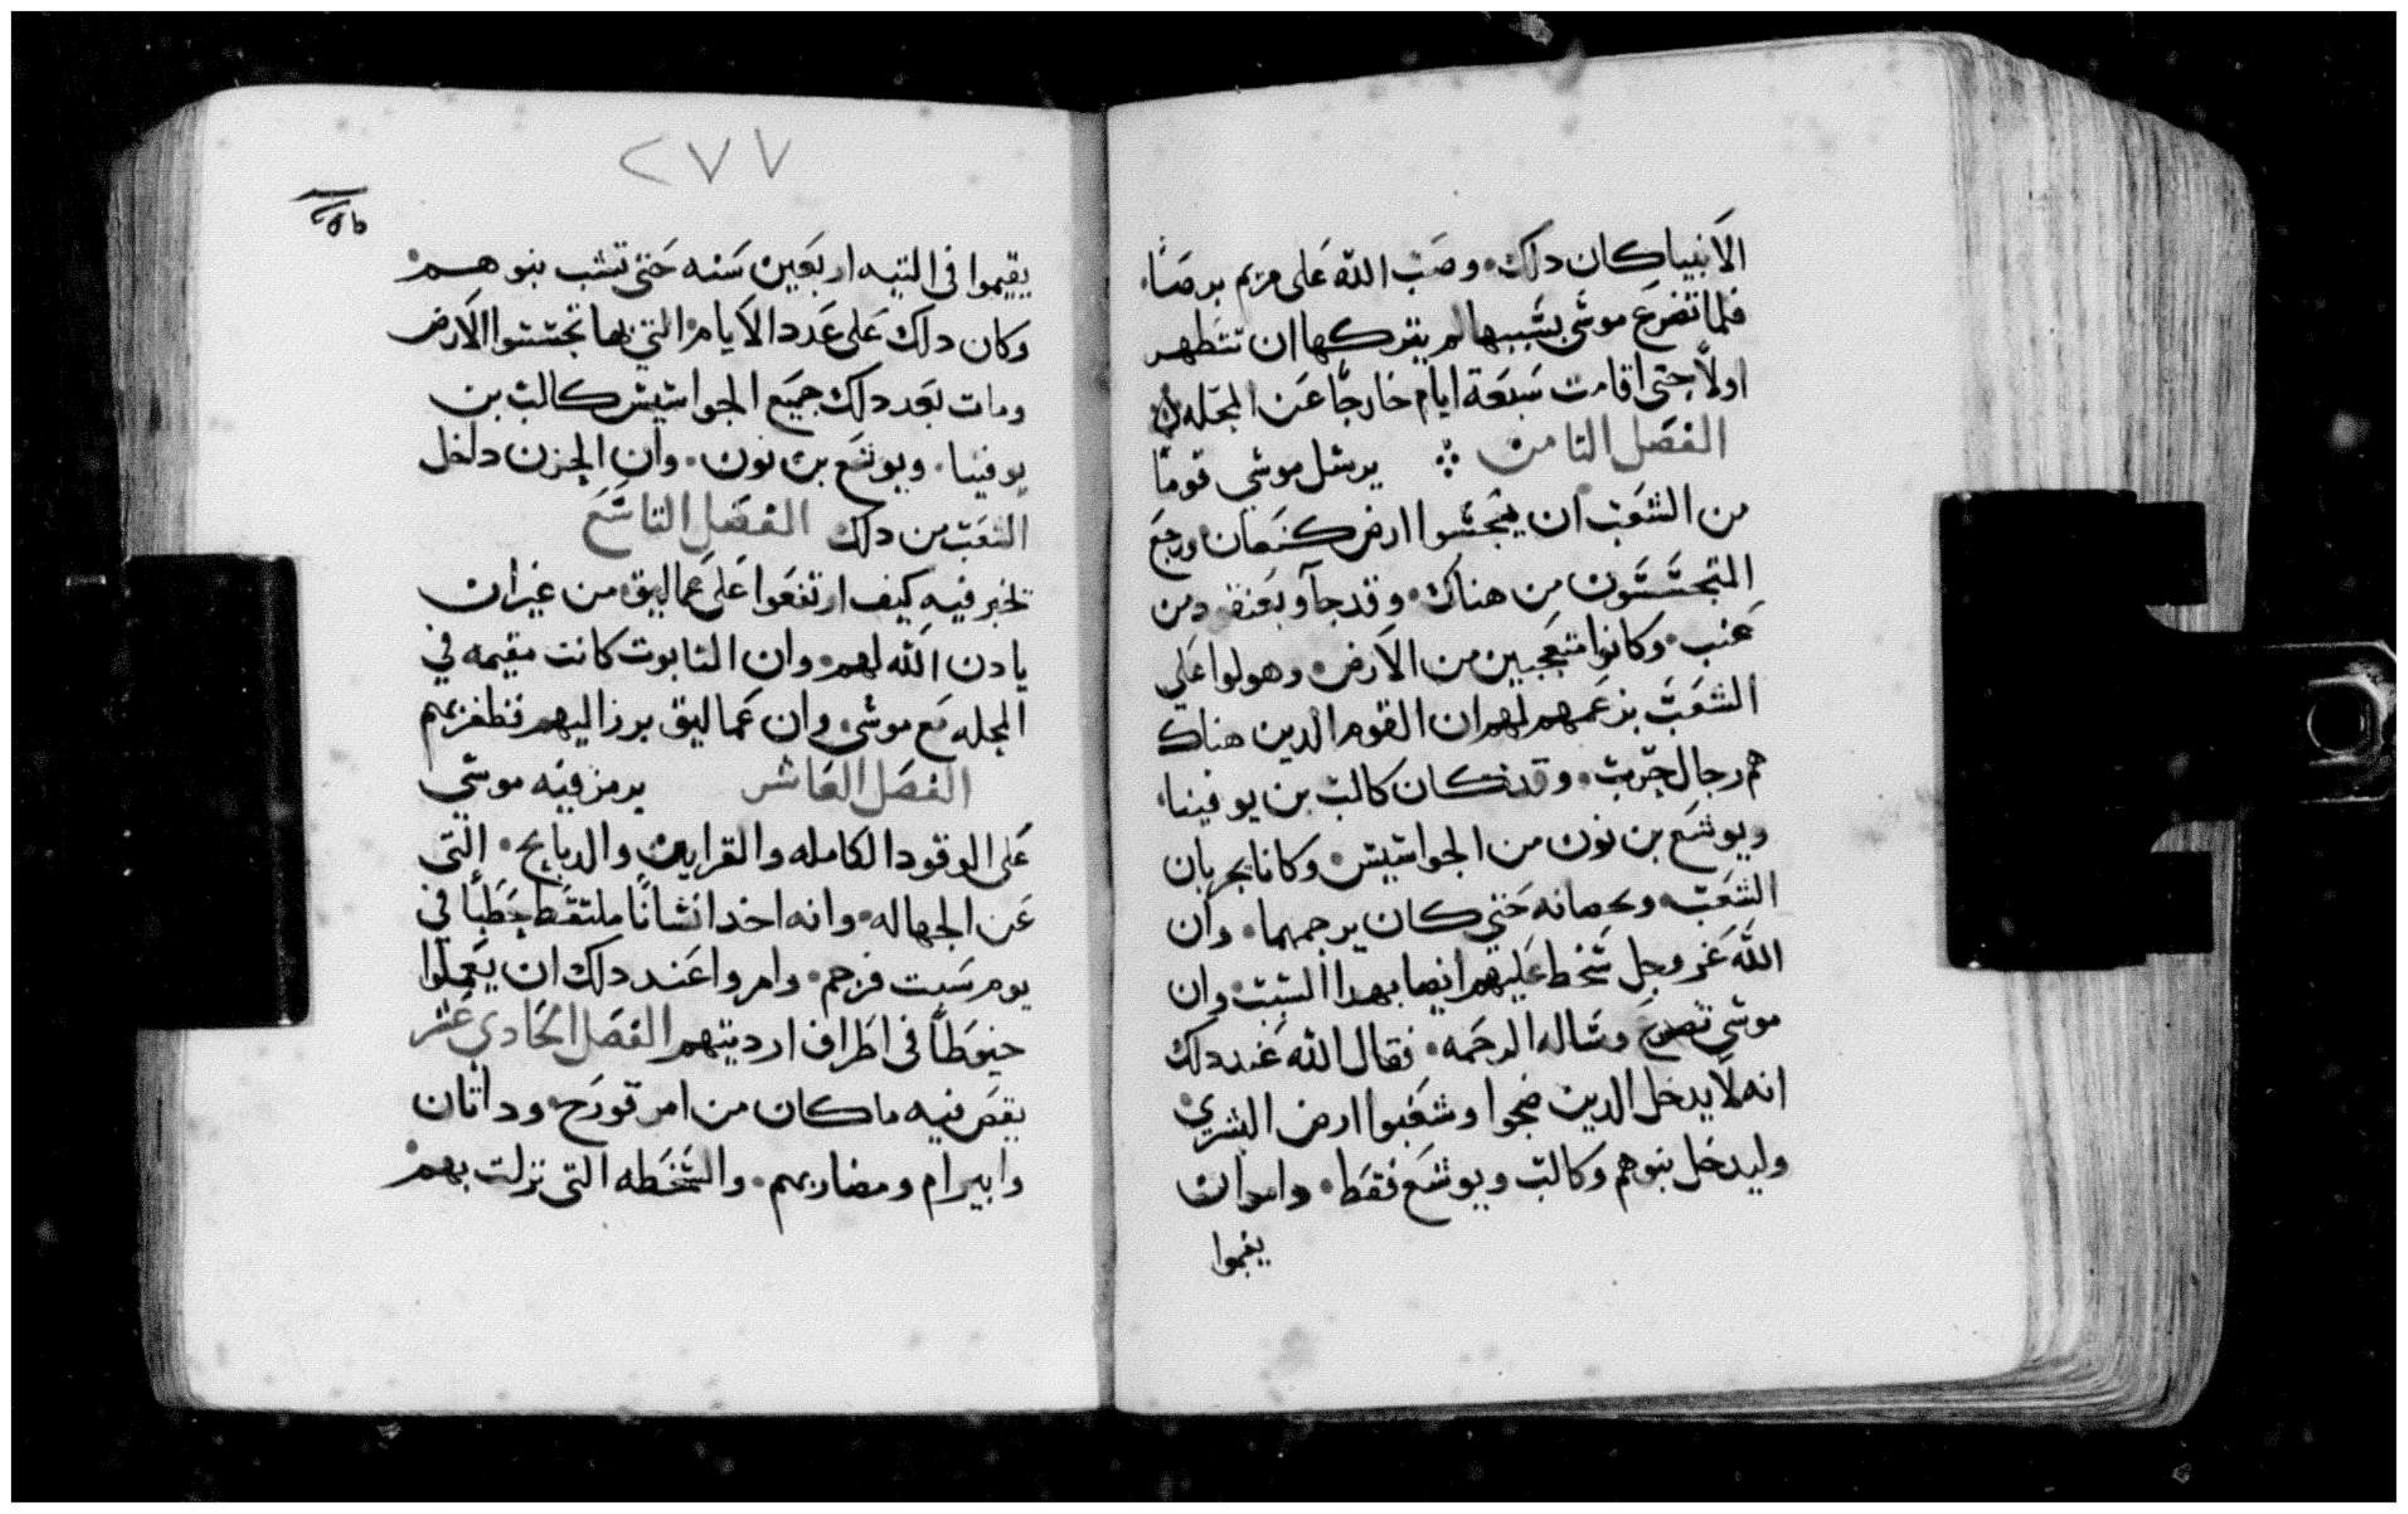 الانبيا كان دلك. وصب الله على مريم برصًا.
فلما تضرع موسى بسببها لم يتركها ان تتطهر
اولاً حتى اقامت سبعة ايام خارجًا عن المحله
الفصل الثامن ∴ يرسل موسى قومًا
من الشعب ان يتجسسوا ارض كنعان ورجع
المتجسسون من هناك. وقد جآو بعنقود من
عنب. وكانوا متعجبين من الارض. وهولوا على
الشعب بزعمهم لهم ان القوم الدين هناك
هم رجال حرب. وقد كان كالب بن يوفنيا.
ويوشع بن نون من الجواسيس. وكانا يجربان
الشعب. حتى كان يرجمهما. وان
الله عز وجل سخط عليهم ايضا بهدا السبب. وان
موسى تضرع وساله الرحمه. فقال الله عند دلك
انه لا يدخل الدين ضجوا وشغبوا ارض البشرى.
وليدخل بنوهم وكالب ويوشع فقط. وامر ان
يقيموا
٢٧٧
يقيموا فى التيه اربعين سنه حتى تشب بنوهم.
وكان دلك على عدد الايام التى بها تجسسوا الارض
ومات بعد دلك جميع الجواسيس كالب بن
يوفنيا. ويوشع بن نون. وان الحزن داخل
الشعب من دلك الفصل التاسع
تخبر فيه كيف ارتفعوا على عماليق من غير ان
يادن الله لهم. وان التابوت كانت مقيمه في
المحله مع موسى. وان عماليق برز اليهم فظفر بهم
الفصل العاشر يرمز فيه موسي
على الوقود الكامله والقرابين والدبايح. التى
عن الجهاله. وانه اخد انسانًا ملتقط حطبًا في
يوم سبت فرجم. وامروا عند دلك ان يعملوا
خيوطًا فى اطراف ارديتهم الفصل الحادي عشر
يقص فيه ما كان من امر قورح. وداتان
وابيرام ومضاربهم. والسخطه التى نزلت بهم.